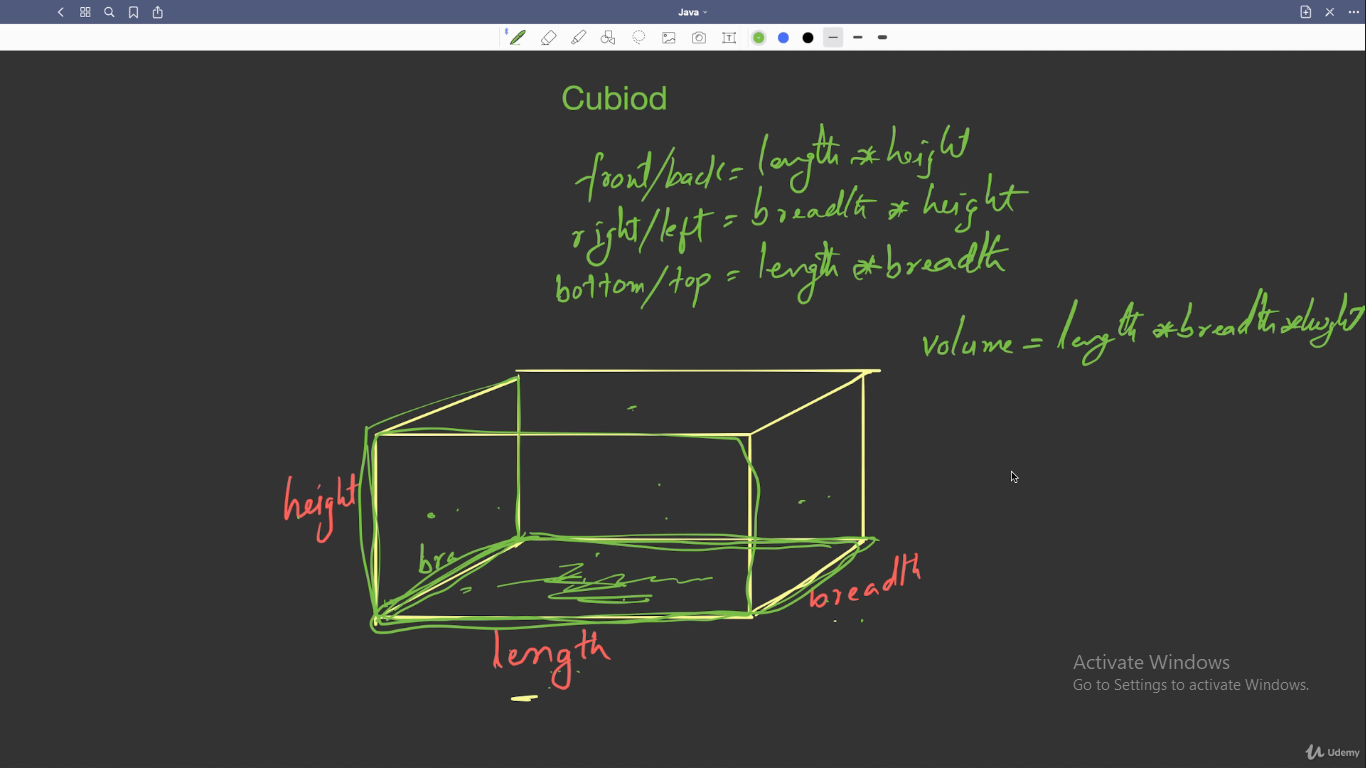 Java
Cubiod
front/back = length * height
right/left = breadth * height
bottom/top = length * breadth
volume = length * breadth * height
height
bre
breadth
length
Activate Windows
Go to Settings to activate Windows.
Udemy